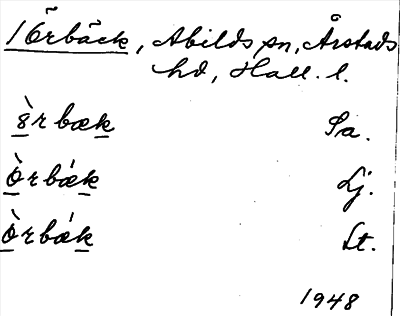 1 Örbäck, Abilds sn, Årstads
hd, Hall. l.
ö̀rbæk Sa.
ö̀rbǽk Lj.
ö̀rbǽk Lt.
1948